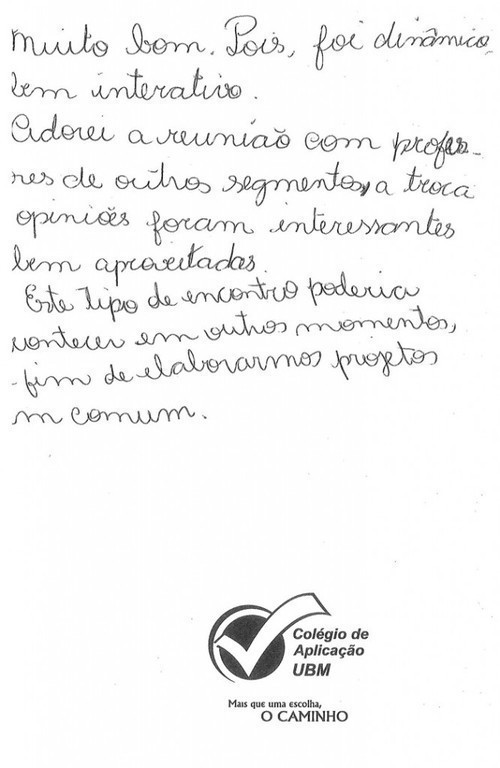 Muito bom. Pois, foi dinâmico,
bem interativo.
Adorei a reunião com profes-
res de outros segmentos, a troca
opiniões foram interessantes
bem aproveitadas.
Este tipo de encontro poderia
contecer em outros momentos,
-fim de elaborarmos projetos
m comum.
Colégio de
Aplicação
UBM
Mais que uma escolha,
O CAMINHO